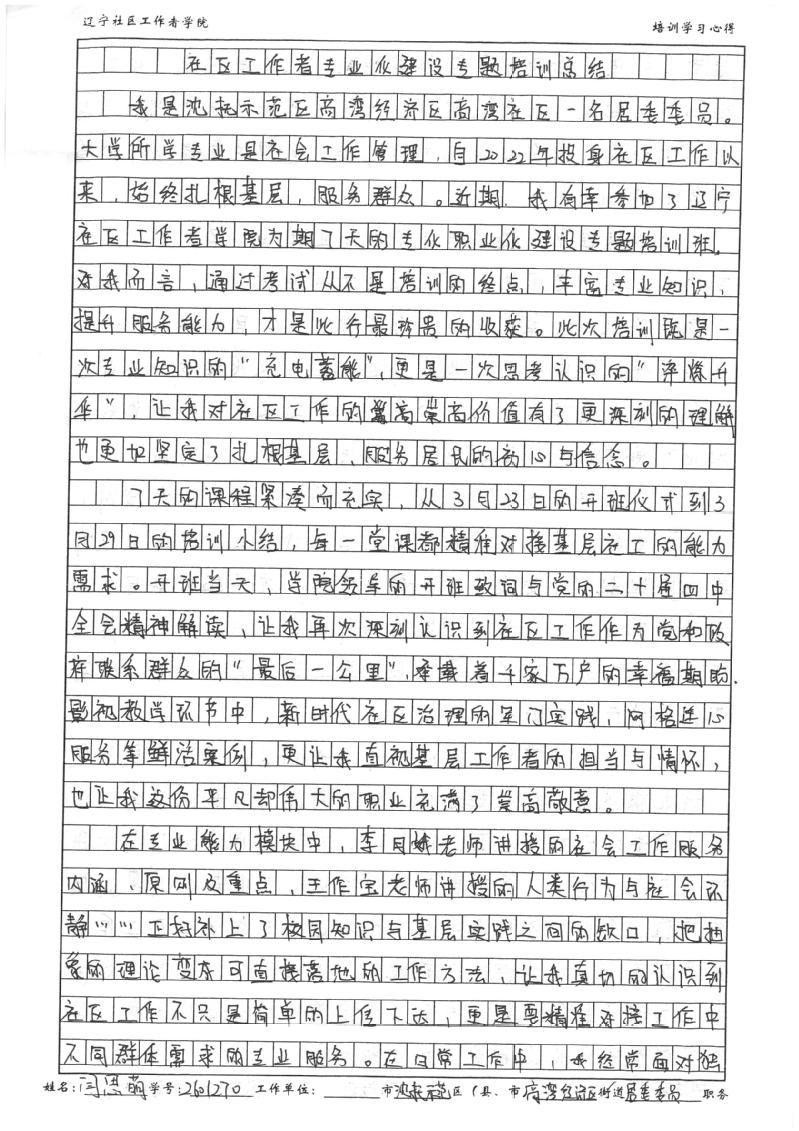 辽宁社区工作者学院 培训学习心得
社区工作者专业化建设专题培训总结
我是沈抚示范区高湾经济区高湾社区一名居委委员。
大学所学专业是社会工作管理，自2022年投身社区工作以
来，始终扎根基层，服务群众。近期，我有幸参加了辽宁
社区工作者学院为期7天的专化职业化建设专题培训班。
对我而言，通过考试从不是培训的终点，丰富专业知识，
提升服务能力，才是此行最珍贵的收获。此次培训既是一
次专业知识的“充电蓄能”，更是一次思考认识的“淬炼升
华”，让我对社区工作的崇高价值有了更深刻的理解
也更加坚定了扎根基层、服务居民的初心与信念。
7天的课程紧凑而充实，从3月23日的开班仪式到3
月29日的培训小结，每一堂课都精准对接基层社工的能力
需求。开班当天，学院领导的开班致词与党的二十届四中
全会精神解读，让我再次深刻认识到社区工作作为党和政
府联系群众的“最后一公里”，承载着千家万户的幸福期盼.
影视教学环节中，新时代社区治理的军门实践，网格连心
服务等鲜活案例，更让我直视基层工作者的担当与情怀，
也让我这份平凡却伟大的职业充满了崇高敬意。
在专业能力模块中，李月娥老师讲授的社会工作服务
内涵、原则及重点，王作宝老师讲授的人类行为与社会环
静……正好补上了校园知识与基层实践之间的缺口，把抽
象的理论变成可直接落地的工作方法，让我真切的认识到
社区工作不只是简单的上传下达，更是要精准对接工作中
不同群体需求的专业服务。在日常工作中，我经常面对独
姓名：闫思萌 学号：2601270 工作单位： 市沈抚示范区（县、市高湾经济区街道居委委员 职务